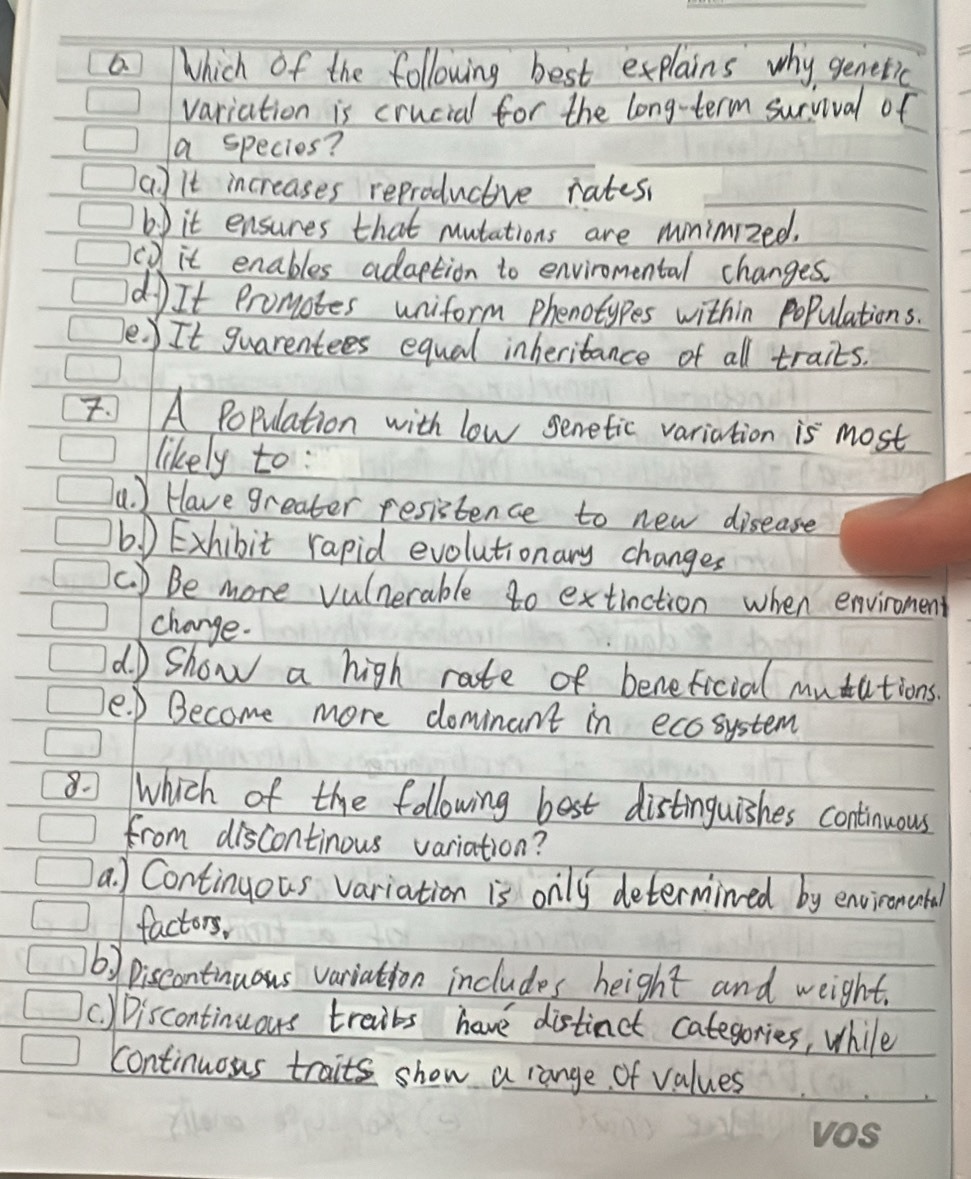 6 Which of the following best explains why genetic
variation is crucial for the long-term survival of
a species?
a.) It increases reproductive rates.
b.) it ensures that mutations are minimized.
c.) it enables adaption to enviromental changes.
d.) It Promotes uniform phenotypes within populations.
e.) It guarentees equal inheritance of all traits.
7. A Population with low genetic variation is most
likely to:
a.) Have greater resistence to new disease
b.) Exhibit rapid evolutionary changes
c.) Be more vulnerable to extinction when enviroment
change.
d.) Show a high rate of beneficial mutations.
e.) Become more dominant in ecosystem
8. Which of the following best distinguishes continuous
from discontinous variation?
a.) Continuous variation is only determined by enviromental
factors.
b.) Discontinuous variation includes height and weight.
c.) Discontinuous traits have distinct categories, while
continuous traits show a range of values
VOS